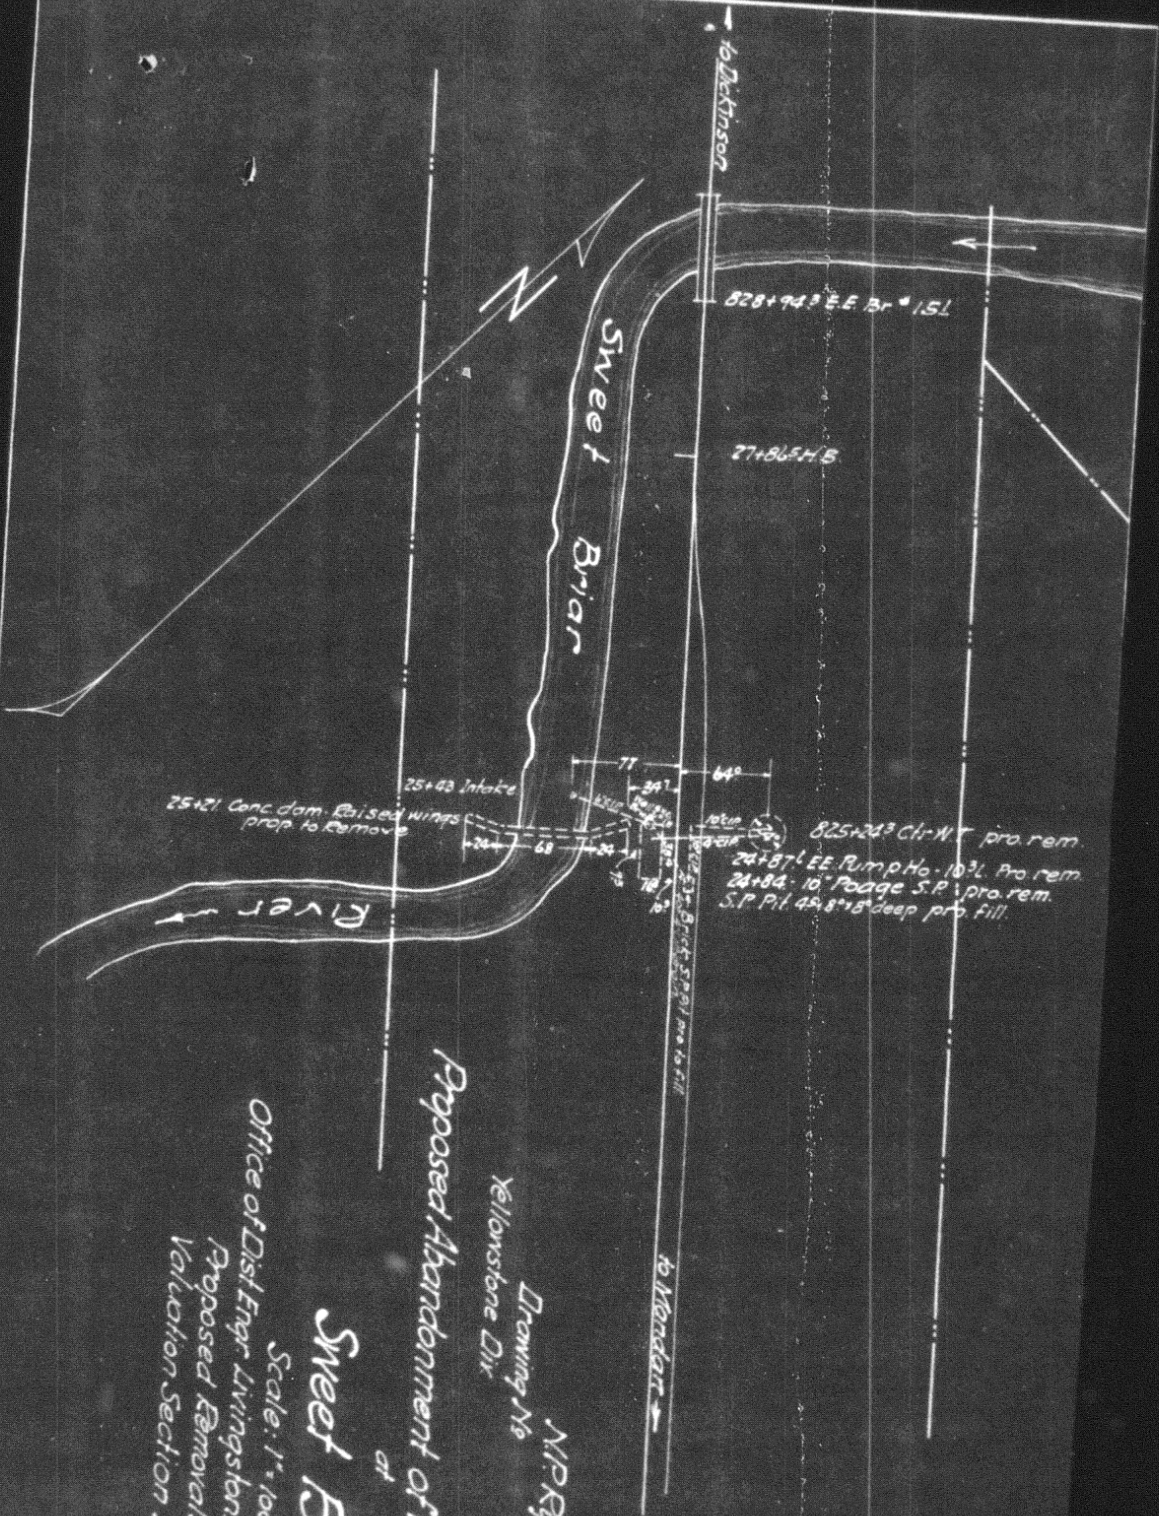 to Dickinson
828+94³ E.E. Br # 151
27+86⁵ H.B.
Sweet Briar
River
N
77
34⁷
64⁰
25+43 Intake
25+21 Conc. dam. Raised wings
prop. to Remove
24
68
24
10"CIP
825+24³ Ctr W.T. pro. rem.
24+87⁶ E.E. Pump Ho - 10³L Pro. rem.
24+84 - 10" Poage S.P. pro. rem.
S.P. Pit 4⁵x8⁰x8⁰ deep pro. fill.
Brick S.P. Pit pro to fill
to Mandan
N.P.Ry
Drawing No
Yellowstone Div.
Proposed Abandonment of
at
Sweet B
Scale: 1"=100
Office of Dist Engr Livingston
Proposed Removal
Valuation Section